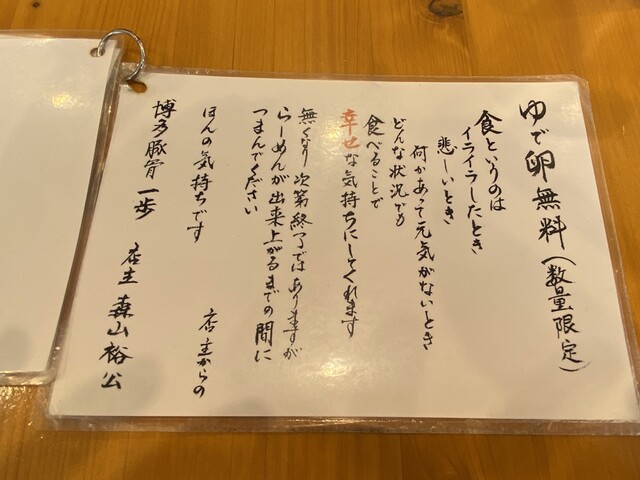 ゆで卵無料(数量限定)
食というのは
イライラしたとき
悲しいとき
何かあって元気がないとき
どんな状況でも
食べることで
幸せな気持ちにしてくれます
無くなり次第終了ではありますが
らーめんが出来上がるまでの間に
つまんでください
店主からの
ほんの気持ちです
博多豚骨 一歩 店主 森山裕公